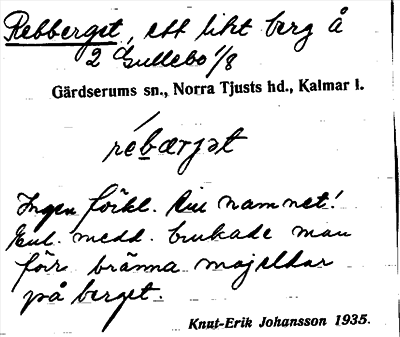 Rebberget, ett litet berg å
2 Gullebo 1/8
Gärdserums sn., Norra Tjusts hd., Kalmar l.
rébærjat
Ingen förkl. till namnet!
Enl. medd. brukade man
förr bränna majeldar
på berget.
Knut-Erik Johansson 1935.